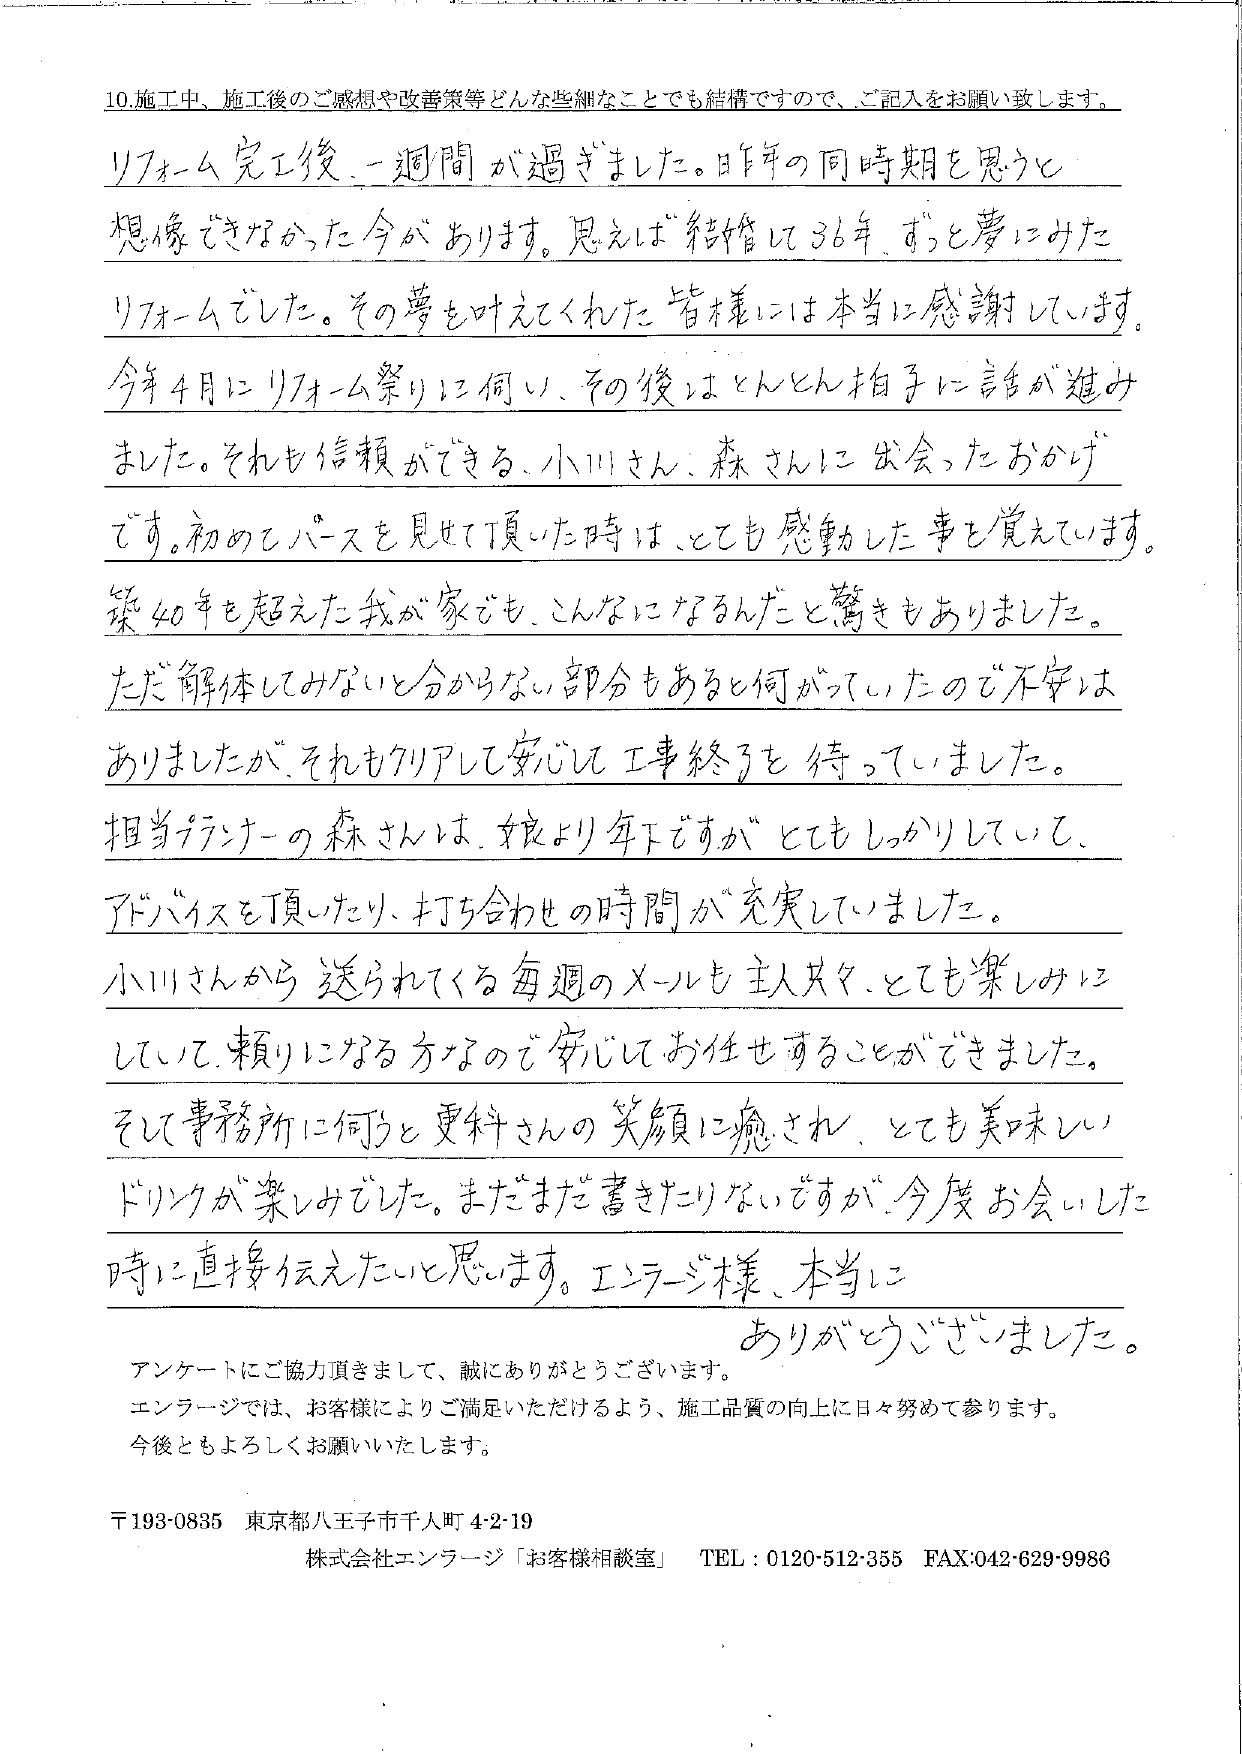 10.施工中、施工後のご感想や改善策等どんな些細なことでも結構ですので、ご記入をお願い致します。
リフォーム完工後、一週間が過ぎました。昨年の同時期を思うと
想像できなかった今があります。思えば結婚して36年、ずっと夢にみた
リフォームでした。その夢を叶えてくれた皆様には本当に感謝しています。
今年4月にリフォーム祭りに伺い、その後はとんとん拍子に話が進み
ました。それも信頼ができる、小川さん、森さんに出会ったおかげ
です。初めてパースを見せて頂いた時は、とても感動した事を覚えています。
築40年も超えた我が家でも、こんなになるんだと驚きもありました。
ただ解体してみないと分からない部分もあると伺がっていたので不安は
ありましたが、それもクリアして安心して工事終了を待っていました。
担当プランナーの森さんは、娘より年下ですがとてもしっかりしていて、
アドバイスを頂いたり、打ち合わせの時間が充実していました。
小川さんから送られてくる毎週のメールも主人共々、とても楽しみに
していて、頼りになる方なので安心してお任せすることができました。
そして事務所に伺うと更科さんの笑顔に癒され、とても美味しい
ドリンクが楽しみでした。まだまだ書きたりないですが、今度お会いした
時に直接伝えたいと思います。エンラージ様、本当に
ありがとうございました。
アンケートにご協力頂きまして、誠にありがとうございます。
エンラージでは、お客様によりご満足いただけるよう、施工品質の向上に日々努めて参ります。
今後ともよろしくお願いいたします。
〒193-0835 東京都八王子市千人町 4-2-19
株式会社エンラージ「お客様相談室」 TEL：0120-512-355 FAX:042-629-9986